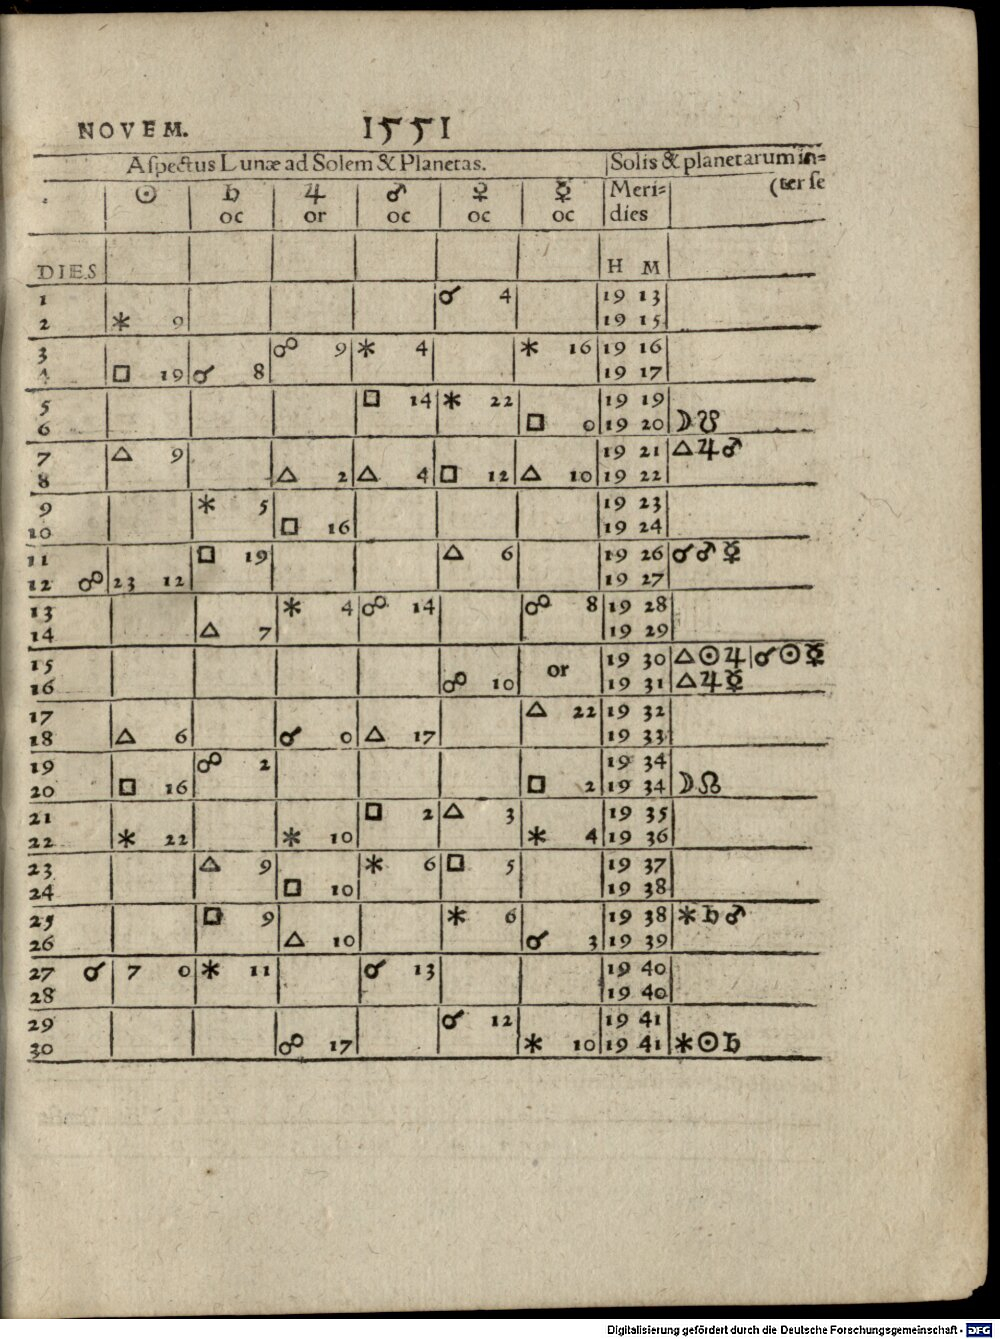 NOVEM. 1551
Aspectus Lunæ ad Solem & Planetas. Solis & planetarum in=
☉ ♄ ♃ ♂ ♀ ☿ Meri= (ter se
oc or oc oc oc dies
DIES H M
1 ☌ 4 19 13
2 ⚹ 9 19 15
3 ☍ 9 ⚹ 4 ⚹ 16 19 16
4 □ 19 ☌ 8 19 17
5 □ 14 ⚹ 22 19 19
6 □ 0 19 20 ☽ ☋
7 △ 9 19 21 △ ♃ ♂
8 △ 2 △ 4 □ 12 △ 10 19 22
9 ⚹ 5 19 23
10 □ 16 19 24
11 □ 19 △ 6 19 26 ☌ ♂ ☿
12 ☍ 23 12 19 27
13 ⚹ 4 ☍ 14 ☍ 8 19 28
14 △ 7 19 29
15 or 19 30 △ ☉ ♃ | ☌ ☉ ☿
16 ☍ 10 19 31 △ ♃ ☿
17 △ 22 19 32
18 △ 6 ☌ 0 △ 17 19 33
19 ☍ 2 19 34
20 □ 16 □ 2 19 34 ☽ ☊
21 □ 2 △ 3 19 35
22 ⚹ 22 ⚹ 10 ⚹ 4 19 36
23 △ 9 ⚹ 6 □ 5 19 37
24 □ 10 19 38
25 □ 9 ⚹ 6 19 38 ⚹ ♄ ♂
26 △ 10 ☌ 3 19 39
27 ☌ 7 0 ⚹ 11 ☌ 13 19 40
28 19 40
29 ☌ 12 19 41
30 ☍ 17 ⚹ 10 19 41 ⚹ ☉ ♄
Digitalisierung gefördert durch die Deutsche Forschungsgemeinschaft - DFG